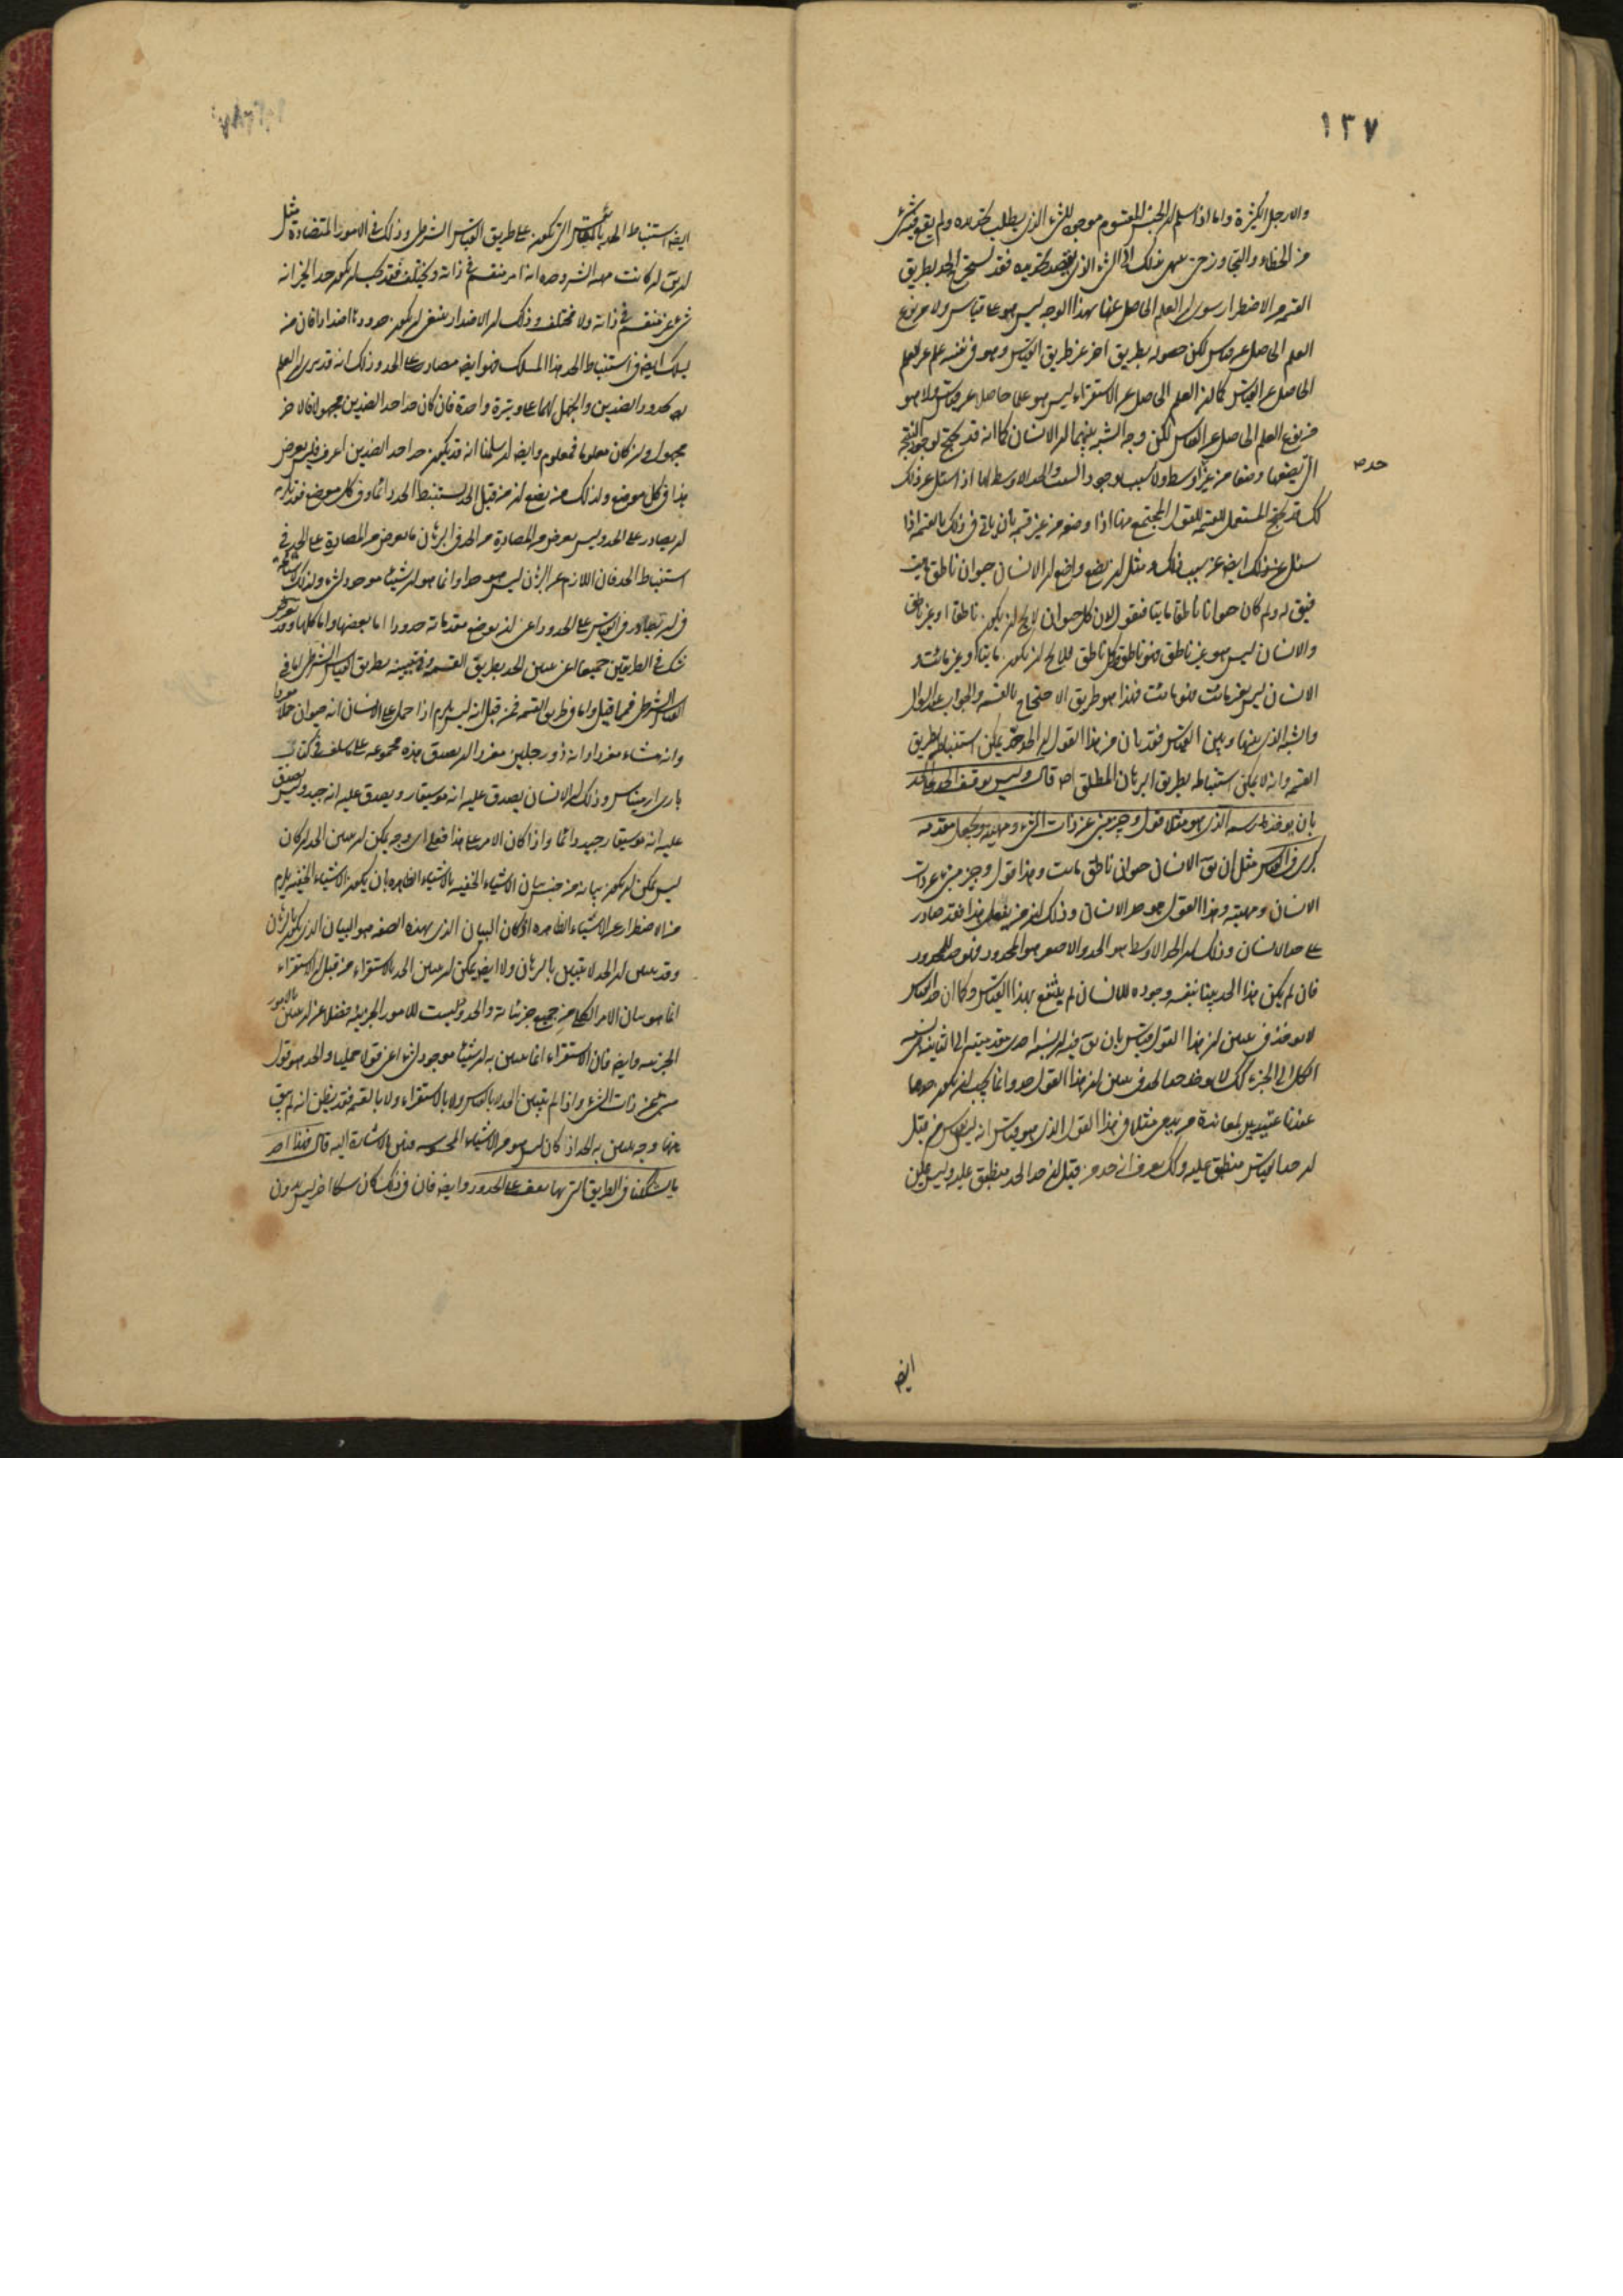 ١٣٧
والارجل الكثيرة واما اذا سلم ان الجنس المقسوم موجود للشيء الذي يطلب تحديده ولم يقع فيه شيء
من الخطاء والتجاوز حتى ينتهي بذلك الى الشيء الذي يقصد تحديده فقد يستخرج الحد بطريق
القسمة من الاضطرار سوى ان العلم الحاصل عنها بهذا الوجه ليس هو عن قياس ولا هو نوع
العلم الحاصل عن قياس لكن حصوله بطريق اخر غير طريق القياس وهو في نفسه علم غير العلم
الحاصل عن القياس كما ان العلم الحاصل عن الاستقراء ليس هو علما حاصلا عن قياس ولا هو
من نوع العلم الحاصل عن القياس لكن وجه الشبه بينهما ان الانسان كما انه قد يحتج لوجود النتيجة
التي يضعها وضعا من غير اوسط ولا سبب لوجود والحد الاوسط لها اذا سئل عن ذلك
كك قد يحتج المستعمل للقسمة للقول المجتمع منها اذا وضعه من غير قسمة بان ياتي في ذلك بالقسمة اذا
سئل عن ذلك ايضا عن سبب ذلك مثل ان يضع واضع ان الانسان حيوان ناطق مايت
فيق له ولم كان حيوانا ناطقا مايتا فيقول لان كل حيوان لا يخ ان يكون ناطقا او غير ناطق
والانسان ليس هو غير ناطق فهو ناطق وكل ناطق فلا يخ ان يكون مايتا او غير مائت و
الانسان ليس بغير مائت فهو مائت فهذا هو طريق الاحتجاج بالقسمة والجواب عن السؤال
والشبه الذي بينها وبين القياس فقد بان من هذا القول ان الحد قد يمكن استنباطه بطريق
القسمة وانه لا يمكن استنباطه بطريق البرهان المطلق اصلا قال وليس يوقف الحد على الحد
بان يوخذ رسمه الذي هو مثلا قول وجيز مبني عن ذات الشيء وماهيته ويجعل مقدمة
كبرى في القياس مثل ان يق الانسان حيوان ناطق مايت وهذا قول وجيز مبني عن ذات
الانسان وماهيته وهذا القول هو حد الانسان وذلك ان من يفعل هذا فقد صادر
على حد الانسان وذلك ان الحد الاوسط هو الحد والاصغر هو المحدود فهو حد للمحدود
فان لم يكن هذا الحد بينا بنفسه وجوده للانسان لم ينتفع بهذا القياس وكما ان حد القياس
لا يوخذ في تبيين ان هذا القول قياس بان يق فيه ان نسبة احدى مقدمتيه الى الثانية نسبة
الكل الى الجزء كك لا يوخذ حد الحد في تبيين ان هذا القول حد وانما يجب ان يكون حدهما
عندنا عتيد لمعاندة من يدعي مثلا في هذا القول الذي هو قياس انه ليس بقياس من قبل
ان حد القياس منطبق عليه وكك يعرف انه حد من قبل ان حد الحد منطبق عليه وليس يمكن
ايضا
ايضا استنباط الحد بالمقاييس التي تكون على طريق القياس الشرطي وذلك في الامور المتضادة مثل
ان يق ان كانت مهية الشر وحده انه امر منقسم في ذاته ومختلف فقد يجب ان يكون حد الخير انه
شيء غير منقسم في ذاته ولا مختلف وذلك ان الاضداد ينبغي ان يكون حدودها اضدادا فان من
يسلك ايضا في استنباط الحد هذا المسلك فهو ايضا مصادر على الحد وذلك انه قد يرى ان العلم
بحدود الضدين والجهل لهما على وتيرة واحدة فان كان حد احد الضدين مجهولا فالاخر
مجهول وان كان معلوما فمعلوم وايضا ان سلمنا انه قد يكون حد احد الضدين اعرف فليس يعرض
هذا في كل موضع ولذلك من يضع ان من قبل الحد يستنبط الحد دائما وفي كل موضع فقد يلزمه
ان يصادر على الحد وليس يعرض من المصادرة من الحد في البرهان ما يعرض من المصادرة على الحد في
استنباط الحد فان اللازم عن البرهان ليس هو حدا وانما هو ان شيئا موجود لشيء ولذلك
في ان يصادر في القياس على الحدود اعني ان يوضع مقدماته حدودا اما بعضها واما كلها وقد
نشك في الطريقين جميعا اعني تبيين الحد بطريق القسمة وفي تبيينه بطريق القياس الشرطي اما في
القياس الشرطي فمما قيل واما في طريق القسمة فمن قبل انه ليس يلزم اذا حمل على الانسان انه حيوان حملا مفردا
وانه مشاء مفردا وانه ذو رجلين مفردا ان يصدق هذه مجموعة على ما سلف في كتاب
باري ارمينياس وذلك ان الانسان يصدق عليه انه موسيقار ويصدق عليه انه جيد وليس يصدق
عليه انه موسيقار جيد دائما واذا كان الامر على هذا فعلى اي وجه يمكن ان يتبين الحد ان كان
ليس يمكن ان يكون بيانه من جنس بيان الاشياء الخفية بالاشياء الظاهرة بان يكون الاشياء الخفية يلزم
من الاضطرار عن الاشياء الظاهرة اذ كان البيان الذي بهذه الصفة هو البيان الذي يكون بالبرهان
وقد تبين ان الحد لا يتبين بالبرهان ولا ايضا يمكن ان يتبين الحد بالاستقراء من قبل ان الاستقراء
انما هو بيان الامر الكلي من جميع جزئياته والحدود ليست للامور الجزئية فضلا عن ان يتبين بالامور
الجزئية وايضا فان الاستقراء انما يتبين به ان شيئا موجود لشيء اعني قولا حمليا والحد هو قول
شرح عن ذات الشيء واذا لم يتبين الحد لا بالقياس ولا بالاستقراء ولا بالقسمة فقد يظن انه لم يبق
هنا وجه يتبين به الحد اذا كان ليس هو من الاشياء المحسوسة فيتبين بالاشارة اليه قال فهذا احد
ما يشككنا في الطريق التي بها نقف على الحدود وايضا فان في ذلك كان شكا اخر ليس بدون